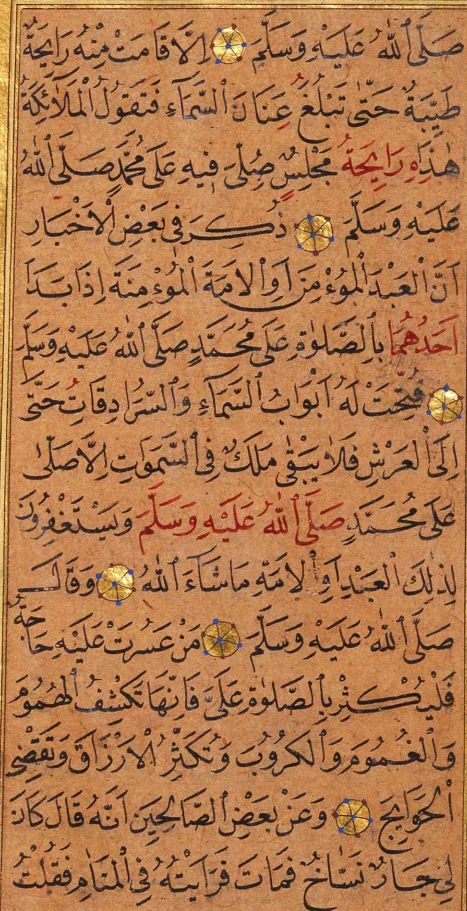 صَلَّى ٱللّٰهُ عَلَيْهِ وَسَلَّمَ اِلَّا قَامَتْ مِنْهُ رَايِحَةٌ
طَيِّبَةٌ حَتّٰى تَبْلُغَ عِنَانَ السَّمَآءِ فَتَقُولُ الْمَلَآئِكَةُ
هٰذَاِهِ رَايِحَةُ مَجْلِسٍ صُلِّيَ فِيهِ عَلٰى مُحَمَّدٍ صَلَّى ٱللّٰهُ
عَلَيْهِ وَسَلَّمَ ذُكِرَ فِى بَعْضِ الْاَخْبَارِ
اَنَّ الْعَبْدَ الْمُؤْمِنَ اَوِ الْاَمَةَ الْمُؤْمِنَةَ اِذَا بَدَاَ
اَحَدُهُمَا بِالصَّلٰوةِ عَلٰى مُحَمَّدٍ صَلَّى ٱللّٰهُ عَلَيْهِ وَسَلَّمَ
فُتِحَتْ لَهُ اَبْوَابُ السَّمَآءِ وَالسُّرَادِقَاتِ حَتّٰى
اِلَى الْعَرْشِ فَلَا يَبْقٰى مَلَكٌ فِى السَّمٰوَاتِ اِلَّا صَلّٰى
عَلٰى مُحَمَّدٍ صَلَّى ٱللّٰهُ عَلَيْهِ وَسَلَّمَ وَيَسْتَغْفِرُونَ
لِذٰلِكَ الْعَبْدِ اَوِ الْاَمَةِ مَا شَآءَ ٱللّٰهُ وَقَالَ
صَلَّى ٱللّٰهُ عَلَيْهِ وَسَلَّمَ مَنْ عَسُرَتْ عَلَيْهِ حَاجَةٌ
فَلْيُكْثِرْ بِالصَّلٰوةِ عَلَيَّ فَاِنَّهَا تَكْشِفُ الْهُمُومَ
وَالْغُمُومَ وَالْكُرُوبَ وَتُكَثِّرُ الْاَرْزَاقَ وَتَقْضِى
الْحَوَايِجَ وَعَنْ بَعْضِ الصَّالِحِينَ اَنَّهُ قَالَ كَانَ
لِى جَارٌ نَسَّاخٌ فَمَاتَ فَرَاَيْتُهُ فِى الْمَنَامِ فَقُلْتُ